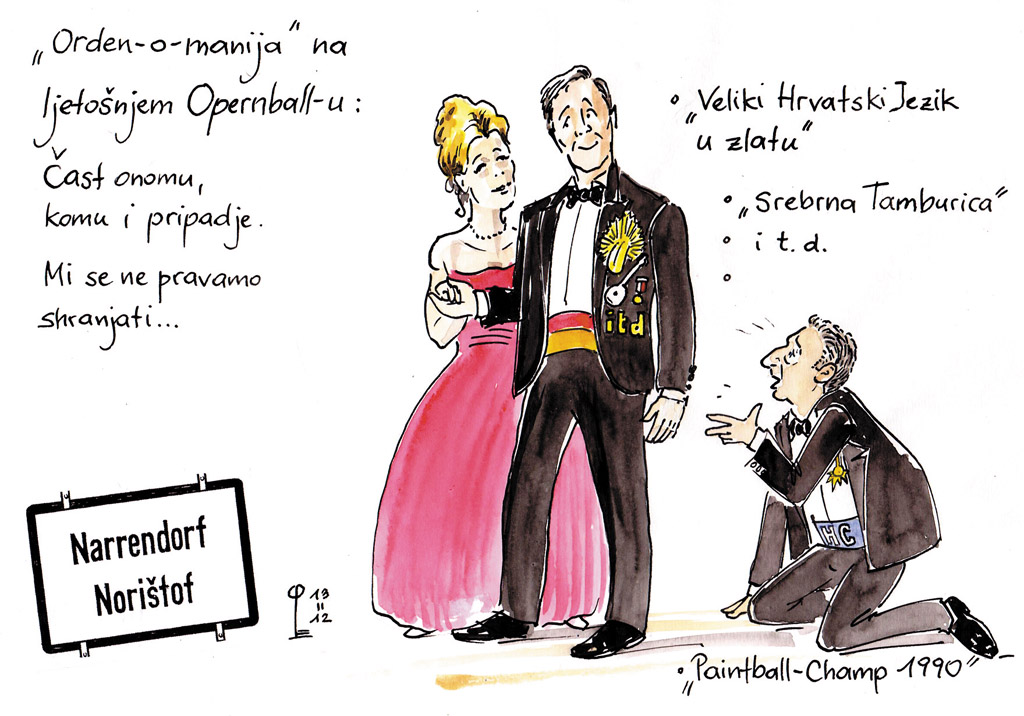 „Orden-o-manija“ na
ljetošnjem Opernball-u:
Čast onomu,
komu i pripadje.
Mi se ne pravamo
shranjati...
• „Veliki Hrvatski Jezik
u zlatu“
• „Srebrna Tamburica“
• i t. d.
•
itd
HC
Narrendorf
Norištof
13
12
• „Paintball-Champ 1990“